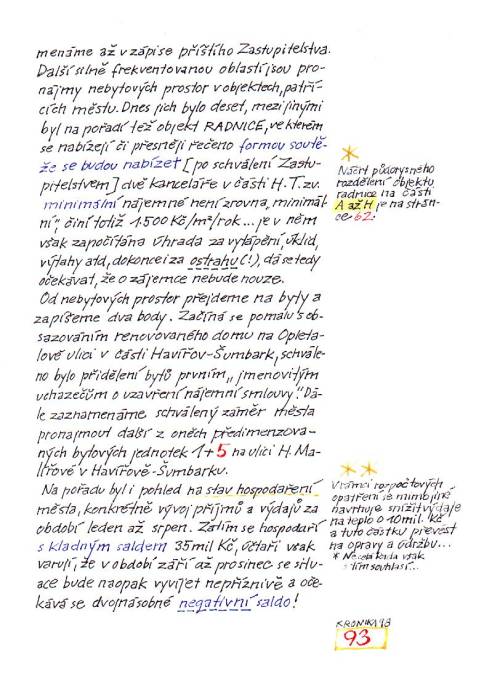 menáme až v zápise příštího Zastupitelstva.
Další silně frekventovanou oblastí jsou pro-
nájmy nebytových prostor v objektech, patří-
cích městu. Dnes jich bylo deset, mezi jinými
byl na pořadí též objekt RADNICE, ve kterém
se nabízejí či přesněji řečeno formou soutě-
že se budou nabízet [po schválení Zastu-
pitelstvem] dvě kanceláře v části H. T. zv.
minimální nájemné není zrovna „minimál-
ní“, činí totiž 1.500 Kč/m²/rok... je v něm
však započítána úhrada za vytápění, úklid,
výtahy atd, dokonce i za ostrahu (!), dá se tedy
očekávat, že o zájemce nebude nouze.
Od nebytových prostor přejdeme na byty a
zapíšeme dva body. Začíná se pomalu s ob-
sazováním renovovaného domu na Opleta-
lově ulici v části Havířov-Šumbark, schvále-
no bylo přidělení bytů prvním „jmenovitým
uchazečům o uzavření nájemní smlouvy.“ Dá-
le zaznamenáme schválený záměr města
pronajmout další z oněch předimenzova-
ných bytových jednotek 1+5 na ulici H. Ma-
lířové v Havířově-Šumbarku.
Na pořadu byl i pohled na stav hospodaření
města, konkrétně vývoj příjmů a výdajů za
období leden až srpen. Zatím se hospodaří
s kladným saldem 35 mil Kč, účtaři však
varují, že v období září až prosinec se situ-
ace bude naopak vyvíjet nepříznivě a oče-
kává se dvojnásobné negativní saldo!
*
Náčrt půdorysného
rozdělení objektu
radnice na části
A až H je na strán-
ce 62.
* *
V rámci rozpočtových
opatření se mimo jiné
navrhuje snížit výdaje
na teplo o 10 mil. Kč
a tuto částku převést
na opravy a údržbu...
* Ne celá Rada však
s tím souhlasí...
KRONIKA 98
93